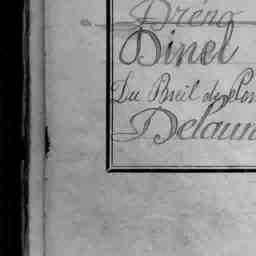 Dréno
Dinel
Du Breil de Pon
Delaun